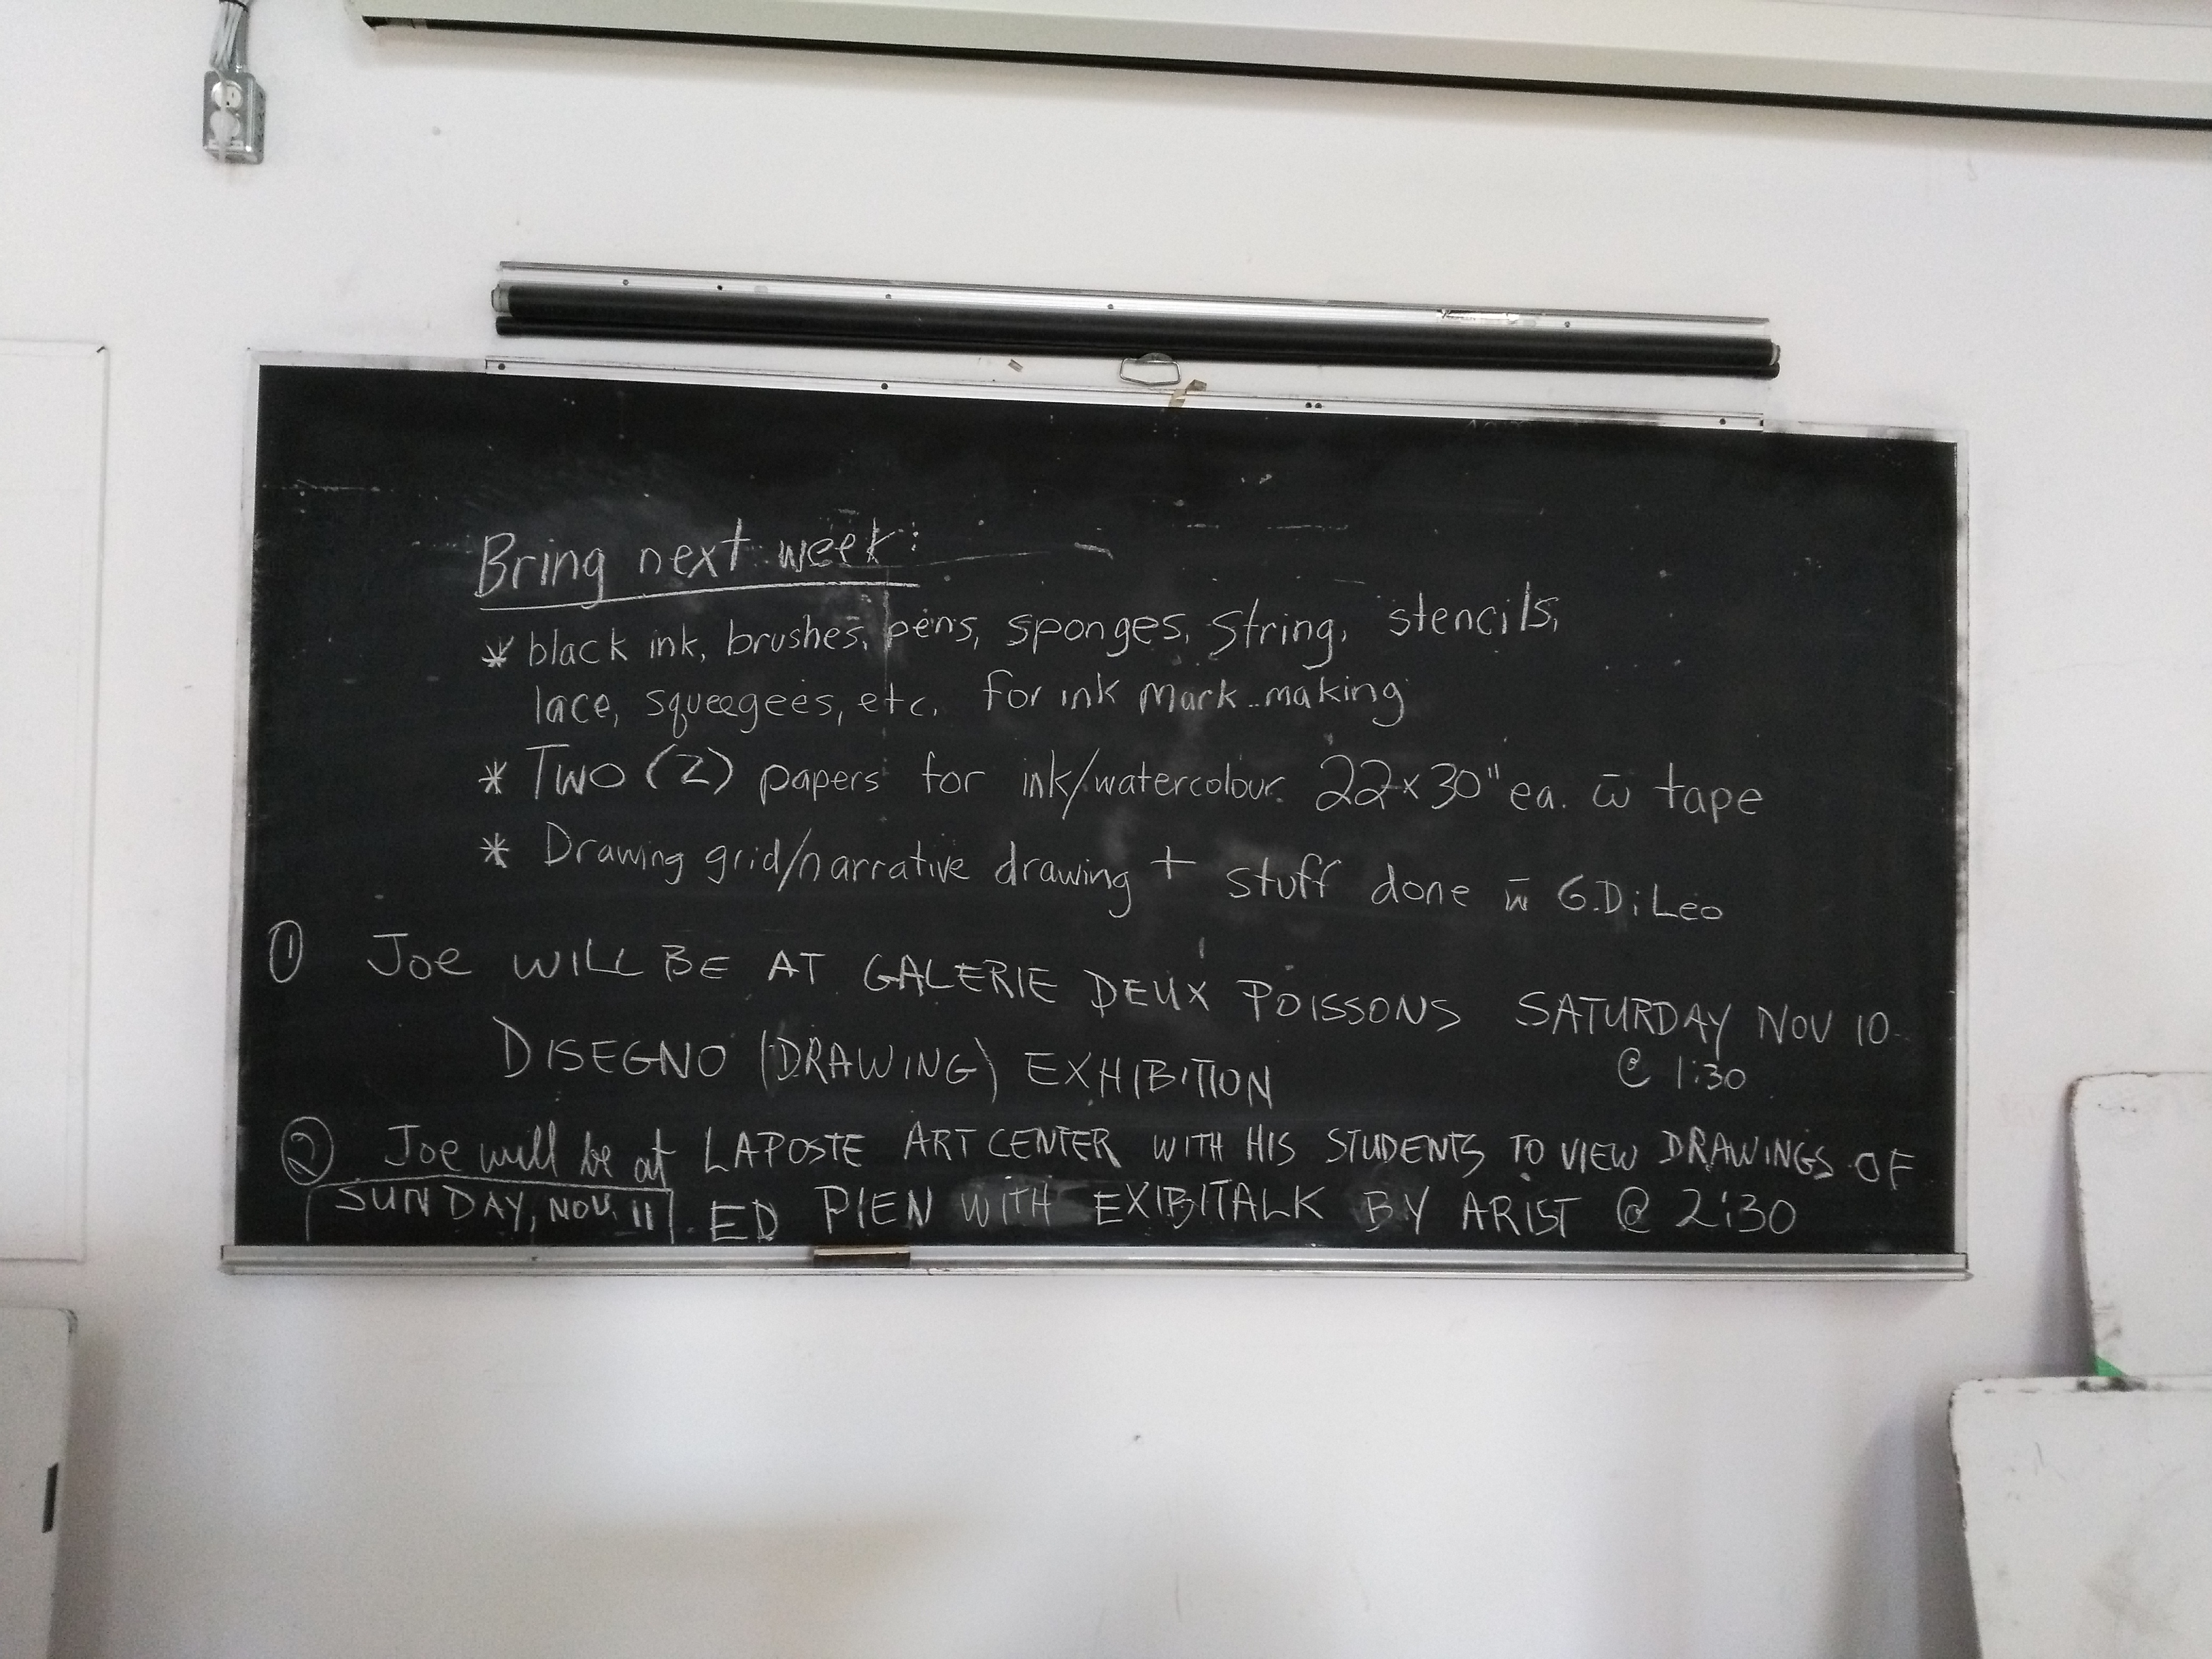 Bring next week:
* black ink, brushes, pens, sponges, string, stencils,
lace, squeegees, etc. for ink mark-making
* Two (2) papers for ink/watercolour. 22x30" ea. w̄ tape
* Drawing grid/narrative drawing + stuff done w̄ G.DiLeo
① JOE WILL BE AT GALERIE DEUX POISSONS SATURDAY NOV 10
DISEGNO (DRAWING) EXHIBITION @ 1:30
② Joe will be at LAPOSTE ART CENTER WITH HIS STUDENTS TO VIEW DRAWINGS OF
SUNDAY, NOV. 11 ED PIEN WITH EXIBITALK BY ARIST @ 2:30